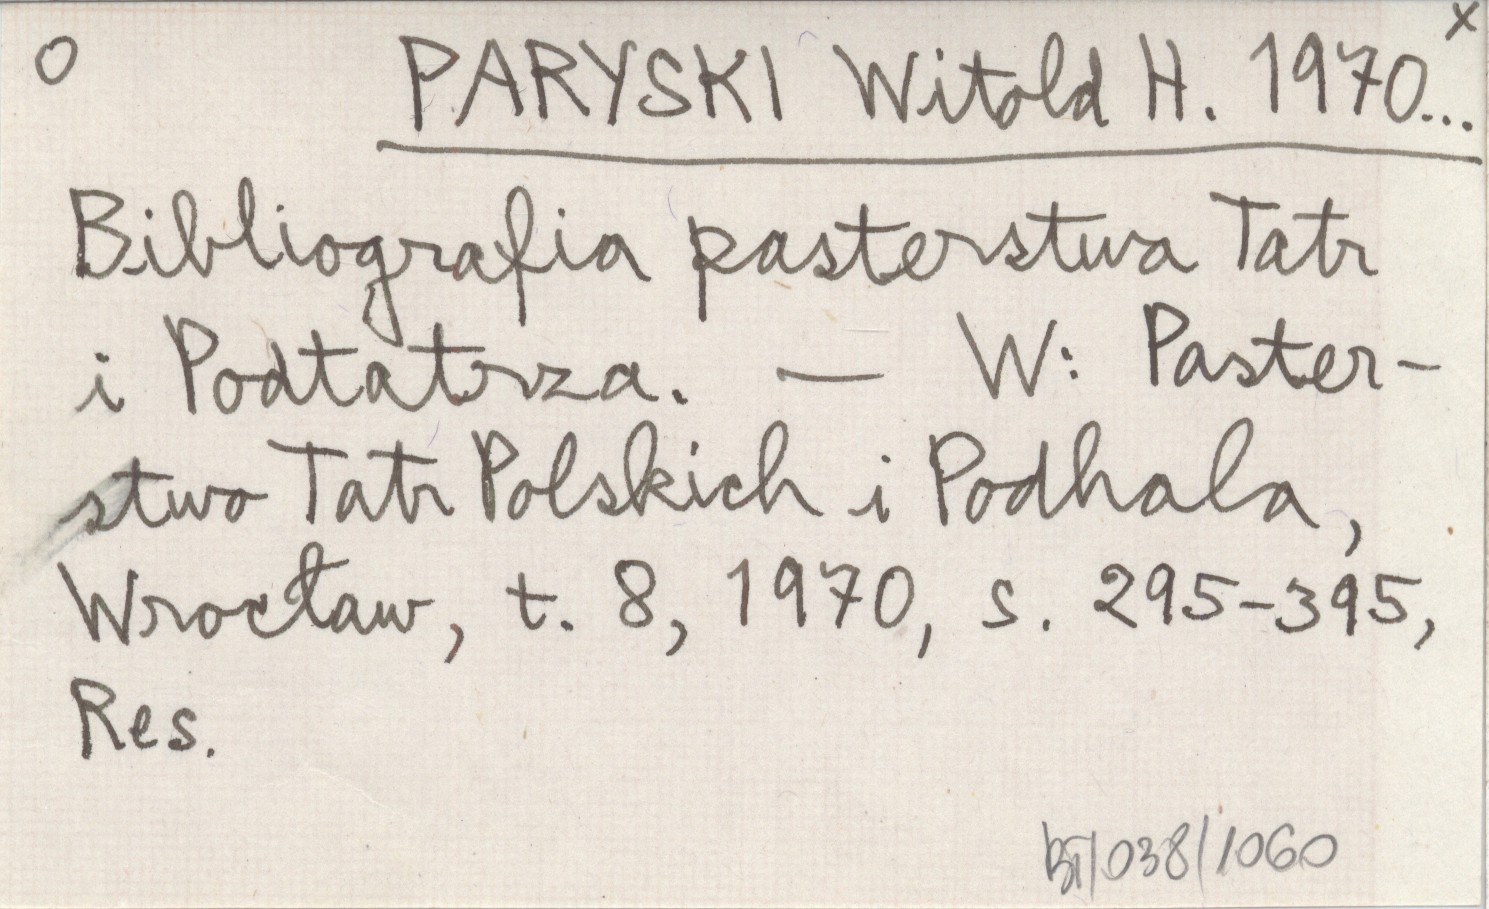 o PARYSKI Witold H. 1970... x
Bibliografia pasterstwa Tatr
i Podtatrza. — W: Paster-
stwo Tatr Polskich i Podhala,
Wrocław, t. 8, 1970, s. 295-395,
Res.
BT/038/1060